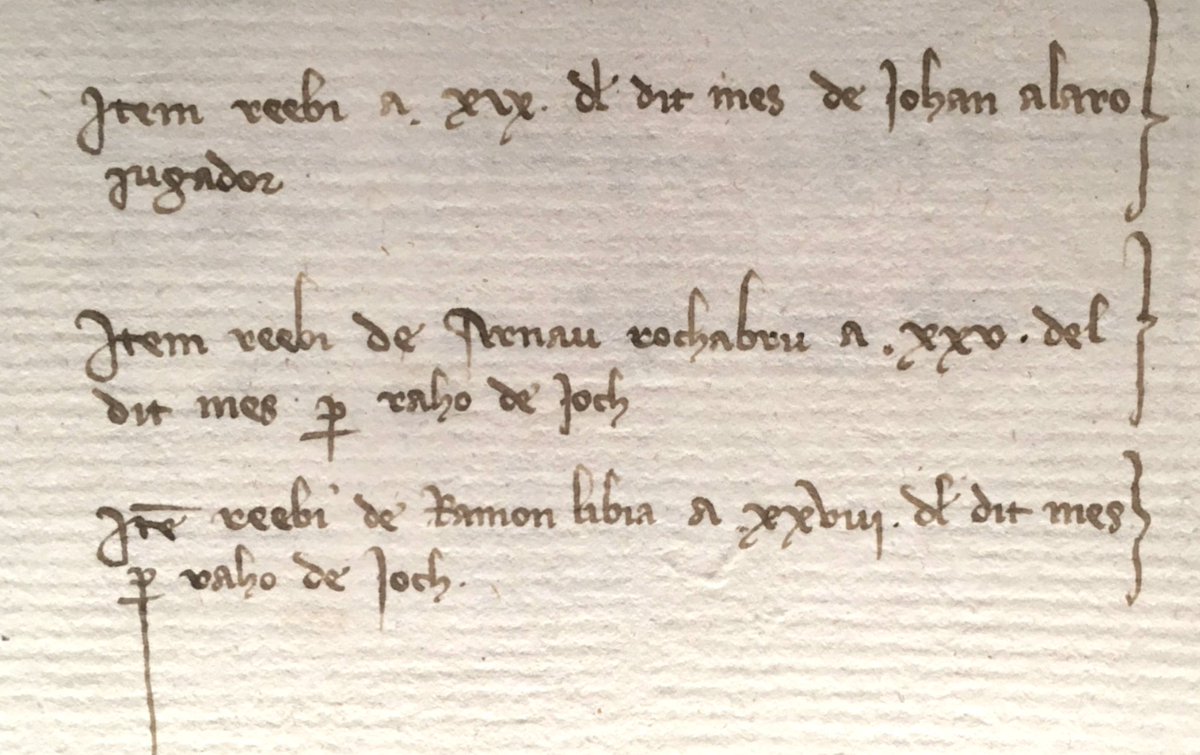 Item reebi a. xix. dl dit mes de Johan alaro
iugador
Item reebi de Arnau rochabru a .xxv. del
dit mes ꝑ raho de Joch
Itē reebi de Ramon libia a .xxviii. dl dit mes
ꝑ raho de Joch.